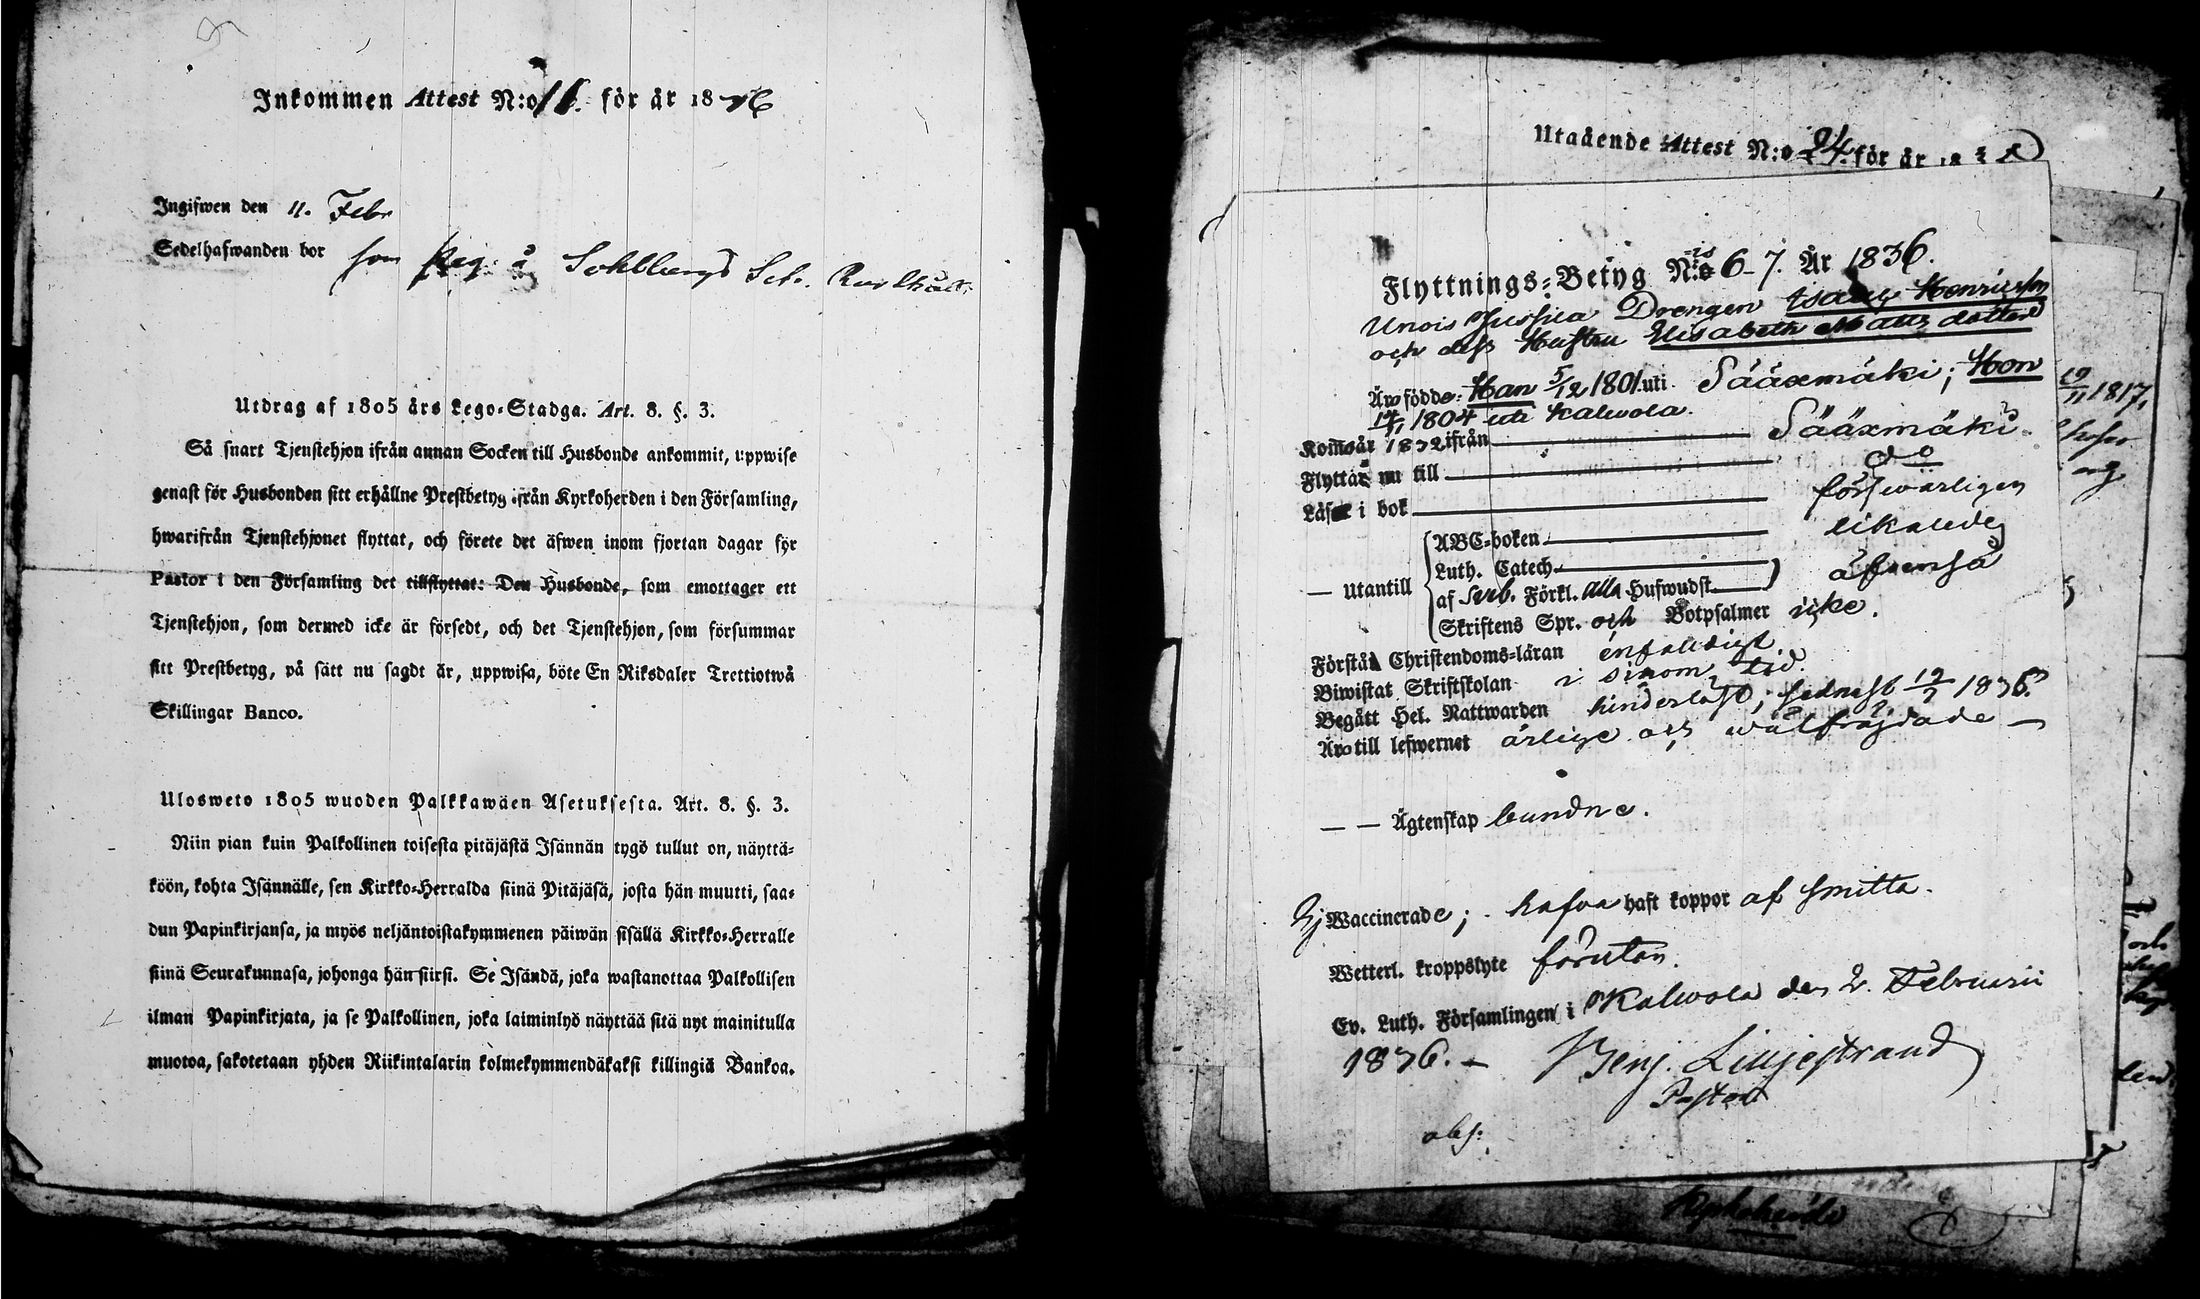 Inkommen Attest N:o 11. för år 1836
Ingifwen den 11. Febr
Sedelhafwanden bor som å
Utdrag af 1805 års Lego-Stadga. Art. 8. §. 3.
Så snart Tjenstehjon ifrån annan Socken till Husbonde ankommit, uppwise
genast för Husbonden sitt erhållne Prestbetyg ifrån Kyrkoherden i den Församling,
hwarifrån Tjenstehjonet flyttat, och förete det äfwen inom fjortan dagar för
Pastor i den Församling det tillflyttat: Den Husbonde, som emottager ett
Tjenstehjon, som dermed icke är försedt, och det Tjenstehjon, som försummar
sitt Prestbetyg, på sätt nu sagdt är, uppwisa, böte En Riksdaler Trettiotwå
Skillingar Banco.
Ulosweto 1805 wuoden Palkkawäen Asetuksesta. Art. 8. §. 3.
Niin pian kuin Palkollinen toisesta pitäjästä Isännän tygö tullut on, näyttä-
köön, kohta Isännälle, sen Kirkko-Herralda siinä Pitäjäsä, josta hän muutti, saa-
dun Papinkirjansa, ja myös neljäntoistakymmenen päiwän sisällä Kirkko-Herralle
siinä Seurakunnasa, johonga hän siirsi. Se Isändä, joka wastanottaa Palkollisen
ilman Papinkirjata, ja se Palkollinen, joka laiminlyö näyttää sitä nyt mainitulla
muotoa, sakotetaan yhden Riikintalarin kolmekymmendäkaksi killingiä Bankoa.
Utgående Attest N:o 24. för år 18
Flyttnings-Betyg N:is 6-7. År 1836.
Unois Jussila Drengen Isaac Henricsson
och dess Hustru Elisabeth Matts dotter
Äro födde: Han 5/12 1801. uti Sääxmäki; Hon
1804 uti Kalwola.
Komne år 1832 ifrån Sääxmäki
Flytta nu till do
Läsa i bok förswarligen
— Utantill
ABC-boken likaledes
Luth. Catech.
af Sveb. Förkl. alla Hufwudst. äfwenså
Skriftens Spr. och Botpsalmer icke.
Förstå Christendoms-läran enfaldigt
Biwistat Skriftskolan i sinom tid.
Begått Hel. Nattwarden hinderlöst, sednast 1836.
Äro till lefwernet ärlige och wälfrägdade —
— — Ägtenskap bundne.
Ej Waccinerade; hafva haft koppor af smitta.
Wetterl. kroppslyte förutan.
Ev. Luth. Församlingen i Kalwola den 2. Februarii
1836. — Benj. Lilljestrand
Pastor
abs:
1817,